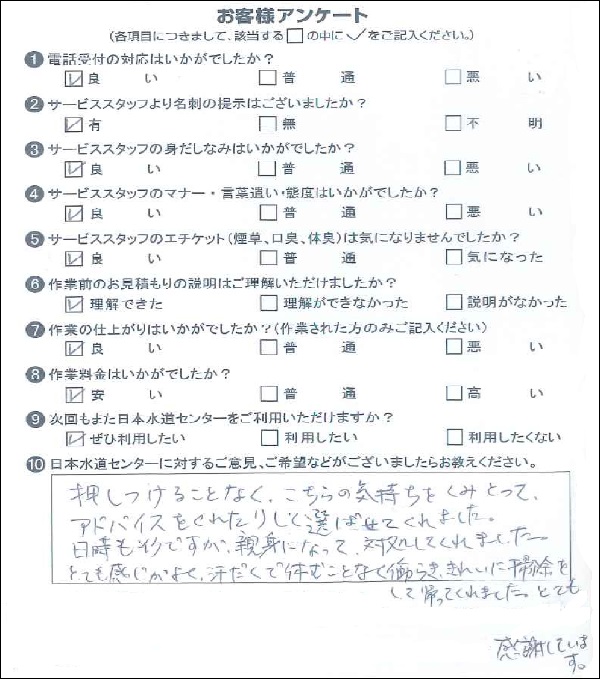 お客様アンケート
(各項目につきまして、該当する□の中に✓をご記入ください。)
❶ 電話受付の対応はいかがでしたか?
☑ 良い □ 普通 □ 悪い
❷ サービススタッフより名刺の提示はございましたか?
☑ 有 □ 無 □ 不明
❸ サービススタッフの身だしなみはいかがでしたか?
☑ 良い □ 普通 □ 悪い
❹ サービススタッフのマナー・言葉遣い・態度はいかがでしたか?
☑ 良い □ 普通 □ 悪い
❺ サービススタッフのエチケット(煙草、口臭、体臭)は気になりませんでしたか?
☑ 良い □ 普通 □ 気になった
❻ 作業前のお見積もりの説明はご理解いただけましたか?
☑ 理解できた □ 理解ができなかった □ 説明がなかった
❼ 作業の仕上がりはいかがでしたか?(作業された方のみご記入ください)
☑ 良い □ 普通 □ 悪い
❽ 作業料金はいかがでしたか?
☑ 安い □ 普通 □ 高い
❾ 次回もまた日本水道センターをご利用いただけますか?
☑ ぜひ利用したい □ 利用したい □ 利用したくない
❿ 日本水道センターに対するご意見、ご希望などがございましたらお教えください。
押しつけることなく、こちらの気持ちをくみとって、
アドバイスをくれたりして選ばせてくれました。
日時もですが、親身になって、対処してくれました。
とても感じがよく、汗だくで休むことなく働らき、きれいに掃除を
して帰ってくれました。とても
感謝していま
す。